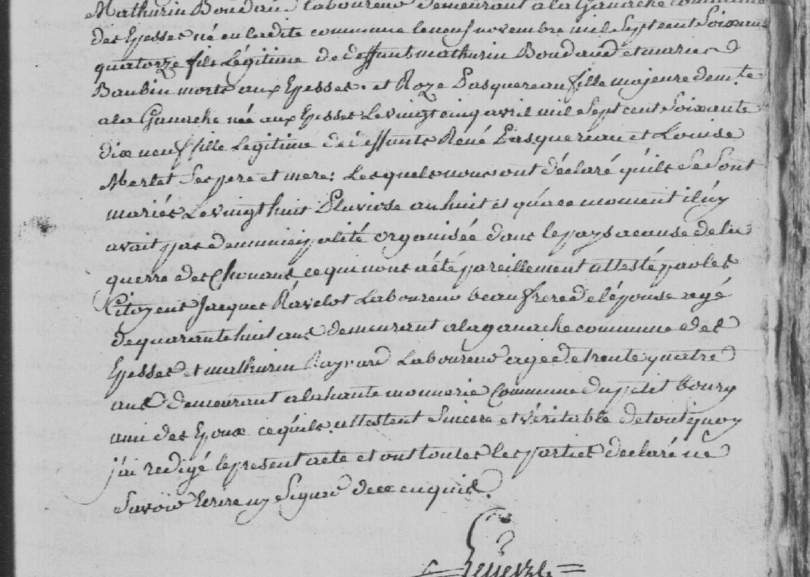 Mathurin Boudaud laboureur demeurant a la Ganache commune
des Epesses né en ladite commune le neuf novembre mil Sept cent Soixante
quatorze fils Légitime de deffunts mathurin Boudaud et marie
Baubin morts aux Epesses: et Roze Pasquereau fille majeure demte
a la Ganache née aux Epesses Le vingt cinq avril mil Sept cent Soixante
dix neuf fille Légitime de deffunts René Pasquereau et Louise
Merlet Ses pere et mere: Lesquels nous ont déclaré qu'ils Se Sont
mariés Le vingt huit Pluviose an huit et qu'a ce moment il n'y
avait pas de municipalité organisée dans le pays a cause de la
guerre des Chouans ce qui nous a été pareillement attesté par les
Citoyens Jacques Ravelot Laboureur beau frere de l'épouse agé
de quarante huit ans demeurant a la ganache commune des
Epesses et mathurin Laboureur agé de trente quatre
ans demeurant a la haute monnerie Commune du petit bourg
ami des Epoux ce qu'ils attestent Sincere et véritable de tout quoy
j'ai redigé le present acte et ont toutes les parties déclaré ne
Savoir Ecrire ny Signer de ce enquis.